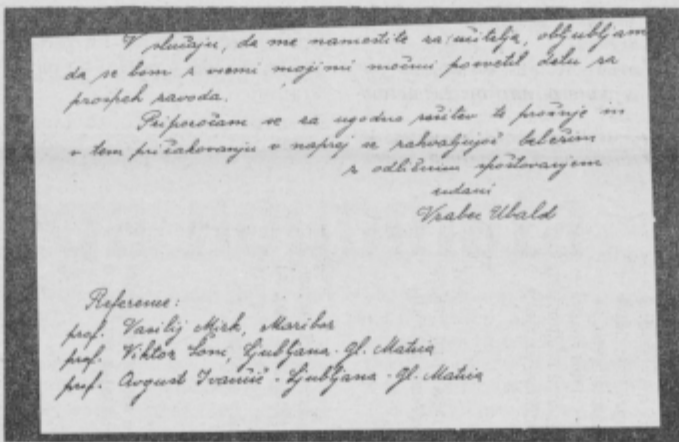 V slučaju, da me namestite za učitelja, obljubljam
da se bom z vsemi mojimi močmi posvetil delu za
prospeh zavoda.
Priporočam se za ugodno rešitev te prošnje in
v tem pričakovanju v naprej se zahvaljujoč beležim
z odličnim spoštovanjem
udani
Vrabec Ubald
Reference:
prof. Vasilij Mirk, Maribor
prof. Viktor Šonc, Ljubljana - Gl. Matica
prof. Avgust Ivančič - Ljubljana - Gl. Matica